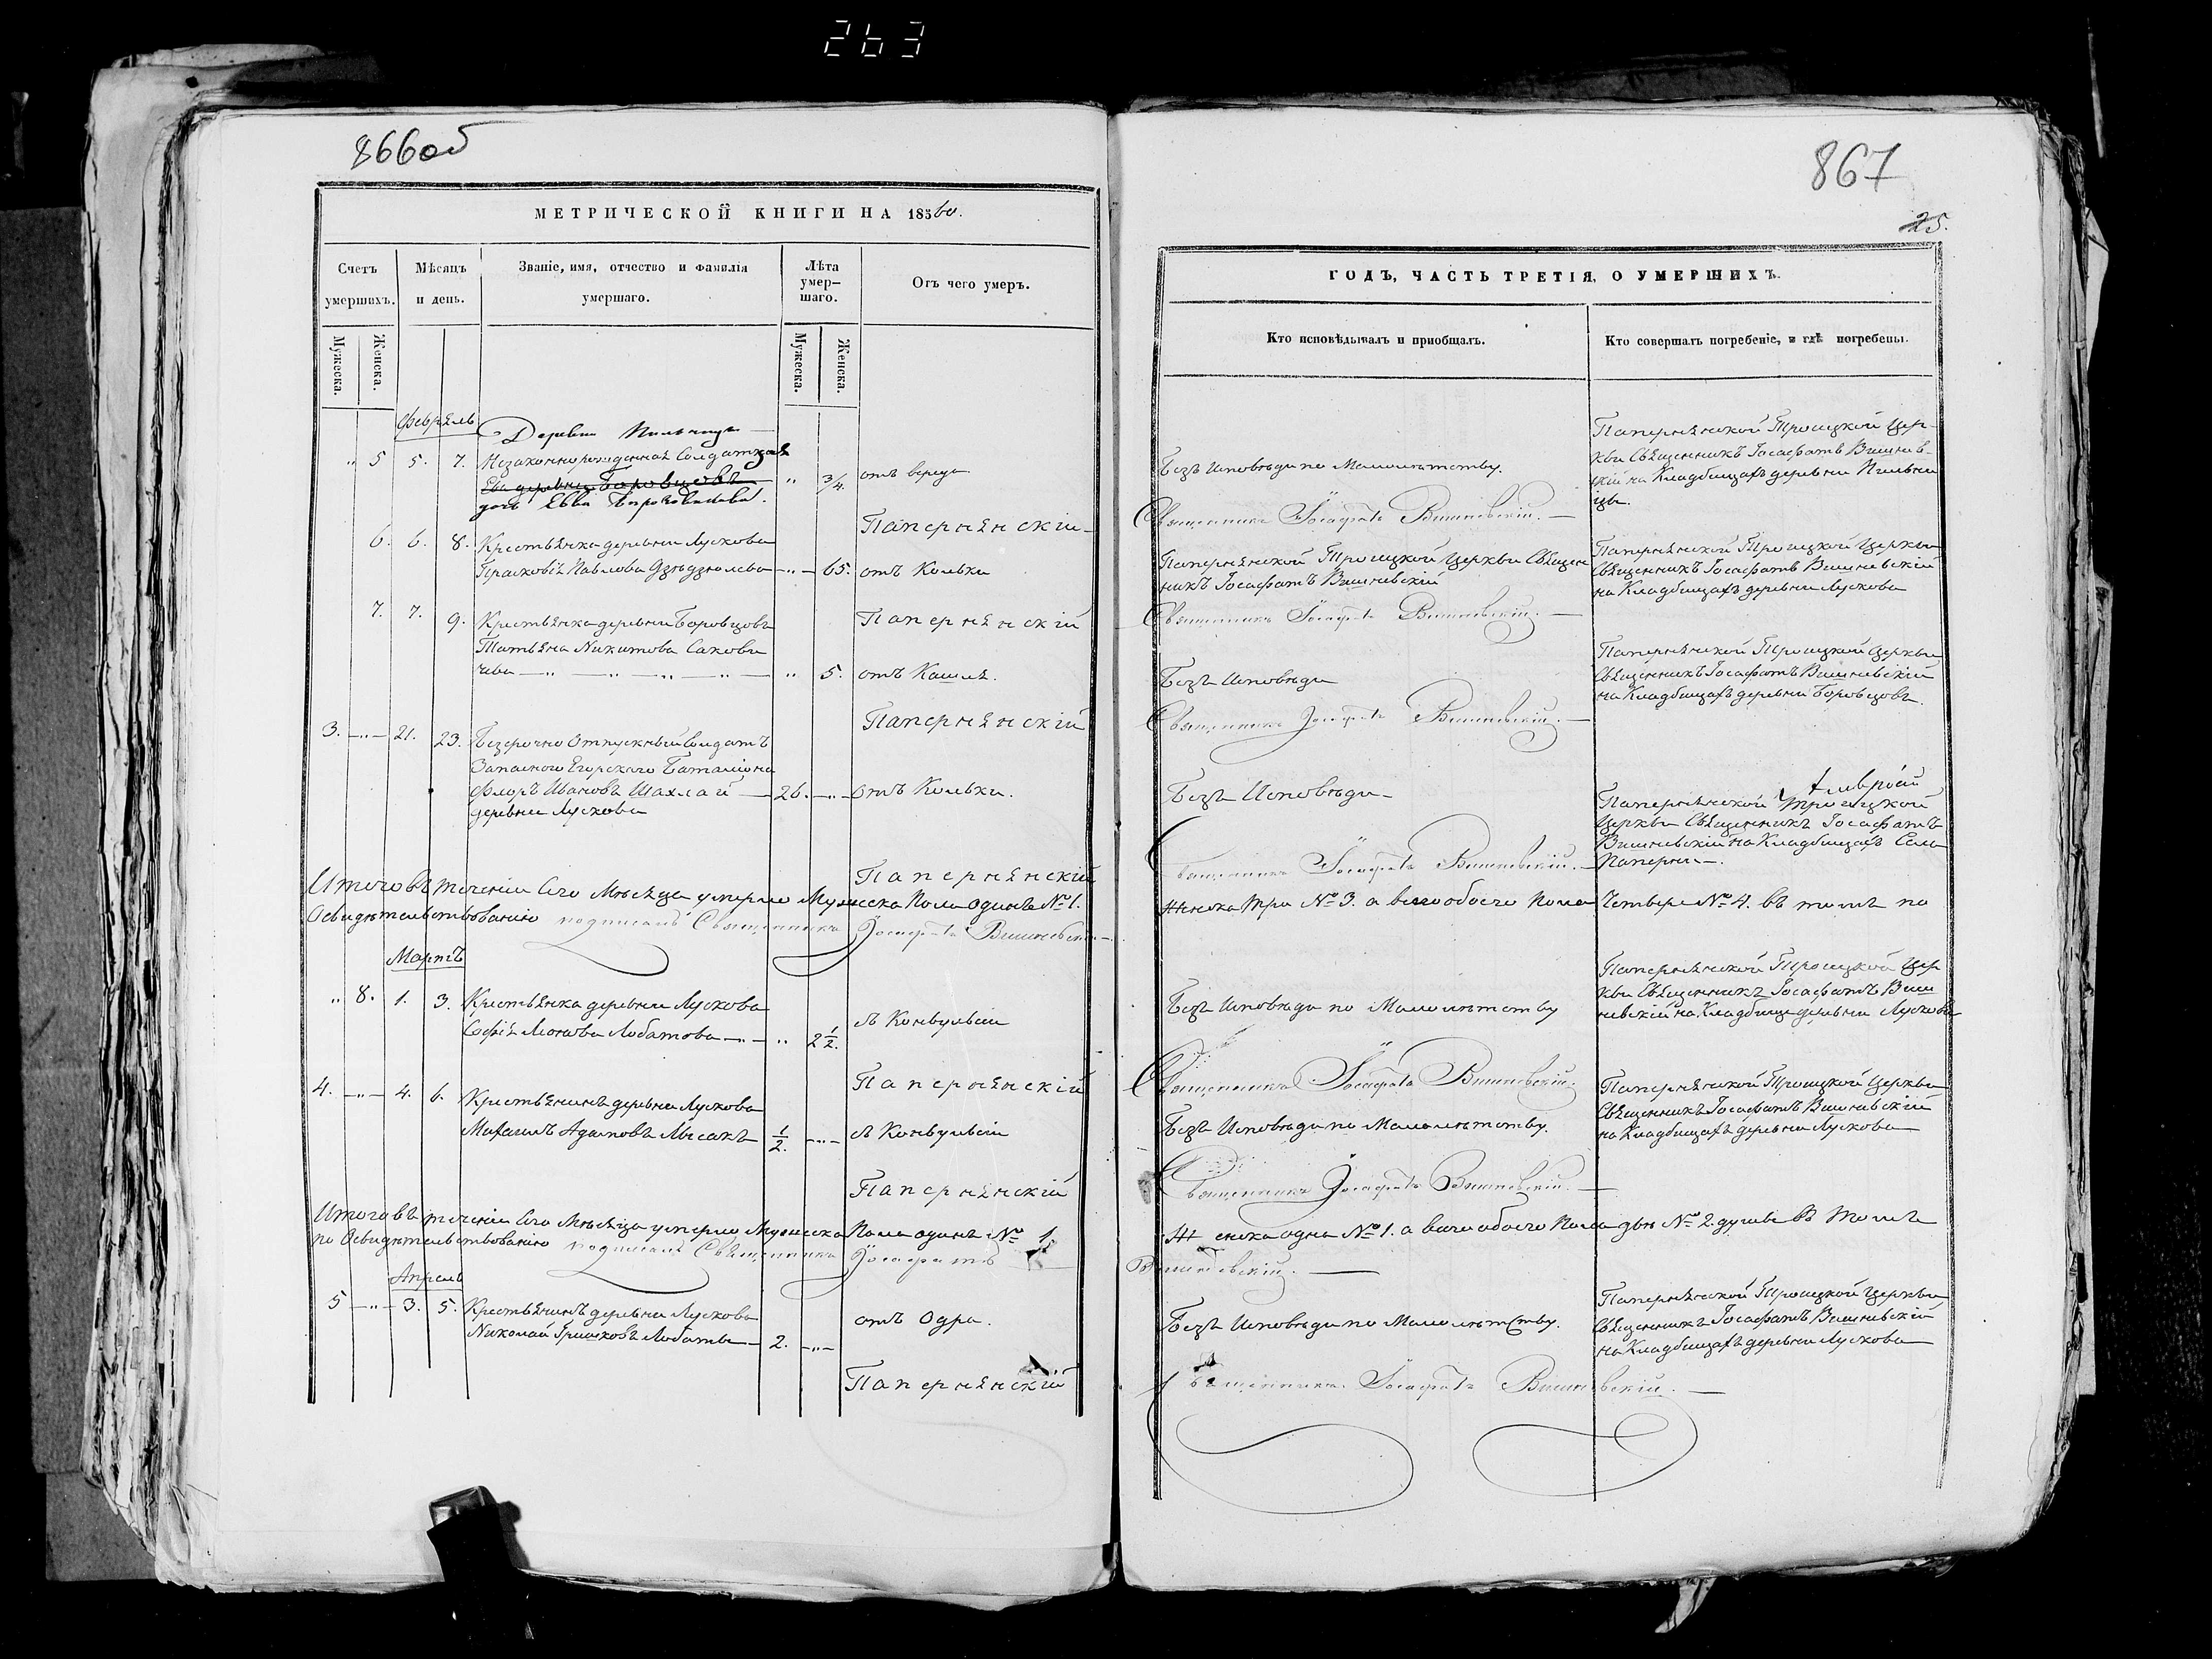 263
866об
МЕТРИЧЕСКОЙ КНИГИ НА 1860.
Счетъ умершихъ.
Мѣсяцъ и день.
Званіе, имя, отчество и фамилія умершаго.
Лѣта умер-
шаго.
Отъ чего умеръ.
Мужеска.
Женска.
Мужеска.
Женска.
Февраль
Деревни
" 5 5. 7. Незаконнорожденная Солдатская
деревни Боровцовъ " 3/4. отъ вереда
дочь Евва
Папернянскій
6. 6. 8. Крестьянка деревни Лускова
Прасковія Павлова — " — 65. отъ Кольки
7. 7. 9. Крестьянка деревни Боровцовъ
Папернянскій
Татьяна Никитова Сакови
чева — " — " — " — " — " 5. отъ Кашля.
Папернянскій
3. — " — 21. 23. Безсрочно Отпускный Солдатъ
Запасного Егорскаго Баталіона
Флоръ Ивановъ Шахлай — 26. — " — Отъ Кольки.
деревни Лускова
Папернянскій
Итого въ теченіи Сего Мѣсяца умерло Мужеска Пола одинъ № 1.
Освидѣтельствованію подписалъ Священникъ Іосафатъ Вишневскій
Мартъ
" 8. 1. 3. Крестьянка деревни Лускова
Софія Лобатова — " — " 2 1/2. съ Конвульсіи
Папернянскій
4. — " — 4. 6. Крестьянинъ деревни Лускова
Михаилъ Адамовъ Лысакъ 1/2. — " — съ Конвульсіи
Папернянскій
Итого въ теченіи Сего Мѣсяца умерло Мужеска Пола одинъ № 1.
по Освидѣтельствованію подписалъ Священникъ Іосафатъ
Апрель
5 — " — 3. 5. Крестьянинъ деревни Лускова
Николай Гришковъ Лобатый — 2. — " — отъ Одра.
Папернянскій
867
25.
ГОДЪ, ЧАСТЬ ТРЕТІЯ, О УМЕРШИХЪ.
Кто исповѣдывалъ и пріобщалъ.
Кто совершалъ погребеніе, и гдѣ погребены.
Папернянской Троицкой Цер-
кви Священникъ Іосафатъ Вишнев-
скій на Кладбищахъ деревни
цы.
Безъ Исповѣди по Малолѣтству.
Священникъ Іосафатъ Вишневскій. —
Папернянской Троицкой Церкви Священ
никъ Іосафатъ Вишневскій
Папернянской Троицкой Церкви
Священникъ Іосафатъ Вишневскій
на Кладбищахъ деревни Лускова
Священникъ Іосафатъ Вишневскій. —
Безъ Исповѣди
Папернянской Троицкой Церкви
Священникъ Іосафатъ Вишневскій
на Кладбищахъ деревни Боровцовъ.
Священникъ Іосафатъ Вишневскій. —
Безъ Исповѣди —
Папернянской Троицкой
Церкви Священникъ Іосафатъ
Вишневскій на Кладбищахъ Села
Паперни —.
Священникъ Іосафатъ Вишневскій. —
Женска три № 3. а всего обоего Пола Четверо № 4. въ томъ по
Безъ Исповѣди по Малолѣтству
Папернянской Троицкой Цер
кви Священникъ Іосафатъ Виш
невскій на Кладбище деревни Лускова
Священникъ Іосафатъ Вишневскій.
Безъ Исповѣди по Малолѣтству.
Папернянской Троицкой Церкви
Священникъ Іосафатъ Вишневскій
на Кладбищахъ деревни Лускова
Священникъ Іосафатъ Вишневскій. —
Женска одна № 1. а всего обоего Пола двѣ № 2. души въ томъ
Вишневскій. —
Безъ Исповѣди по Малолѣтству.
Папернянской Троицкой Церкви
Священникъ Іосафатъ Вишневскій
на Кладбищахъ деревни Лускова
Священникъ Іосафатъ Вишневскій. —